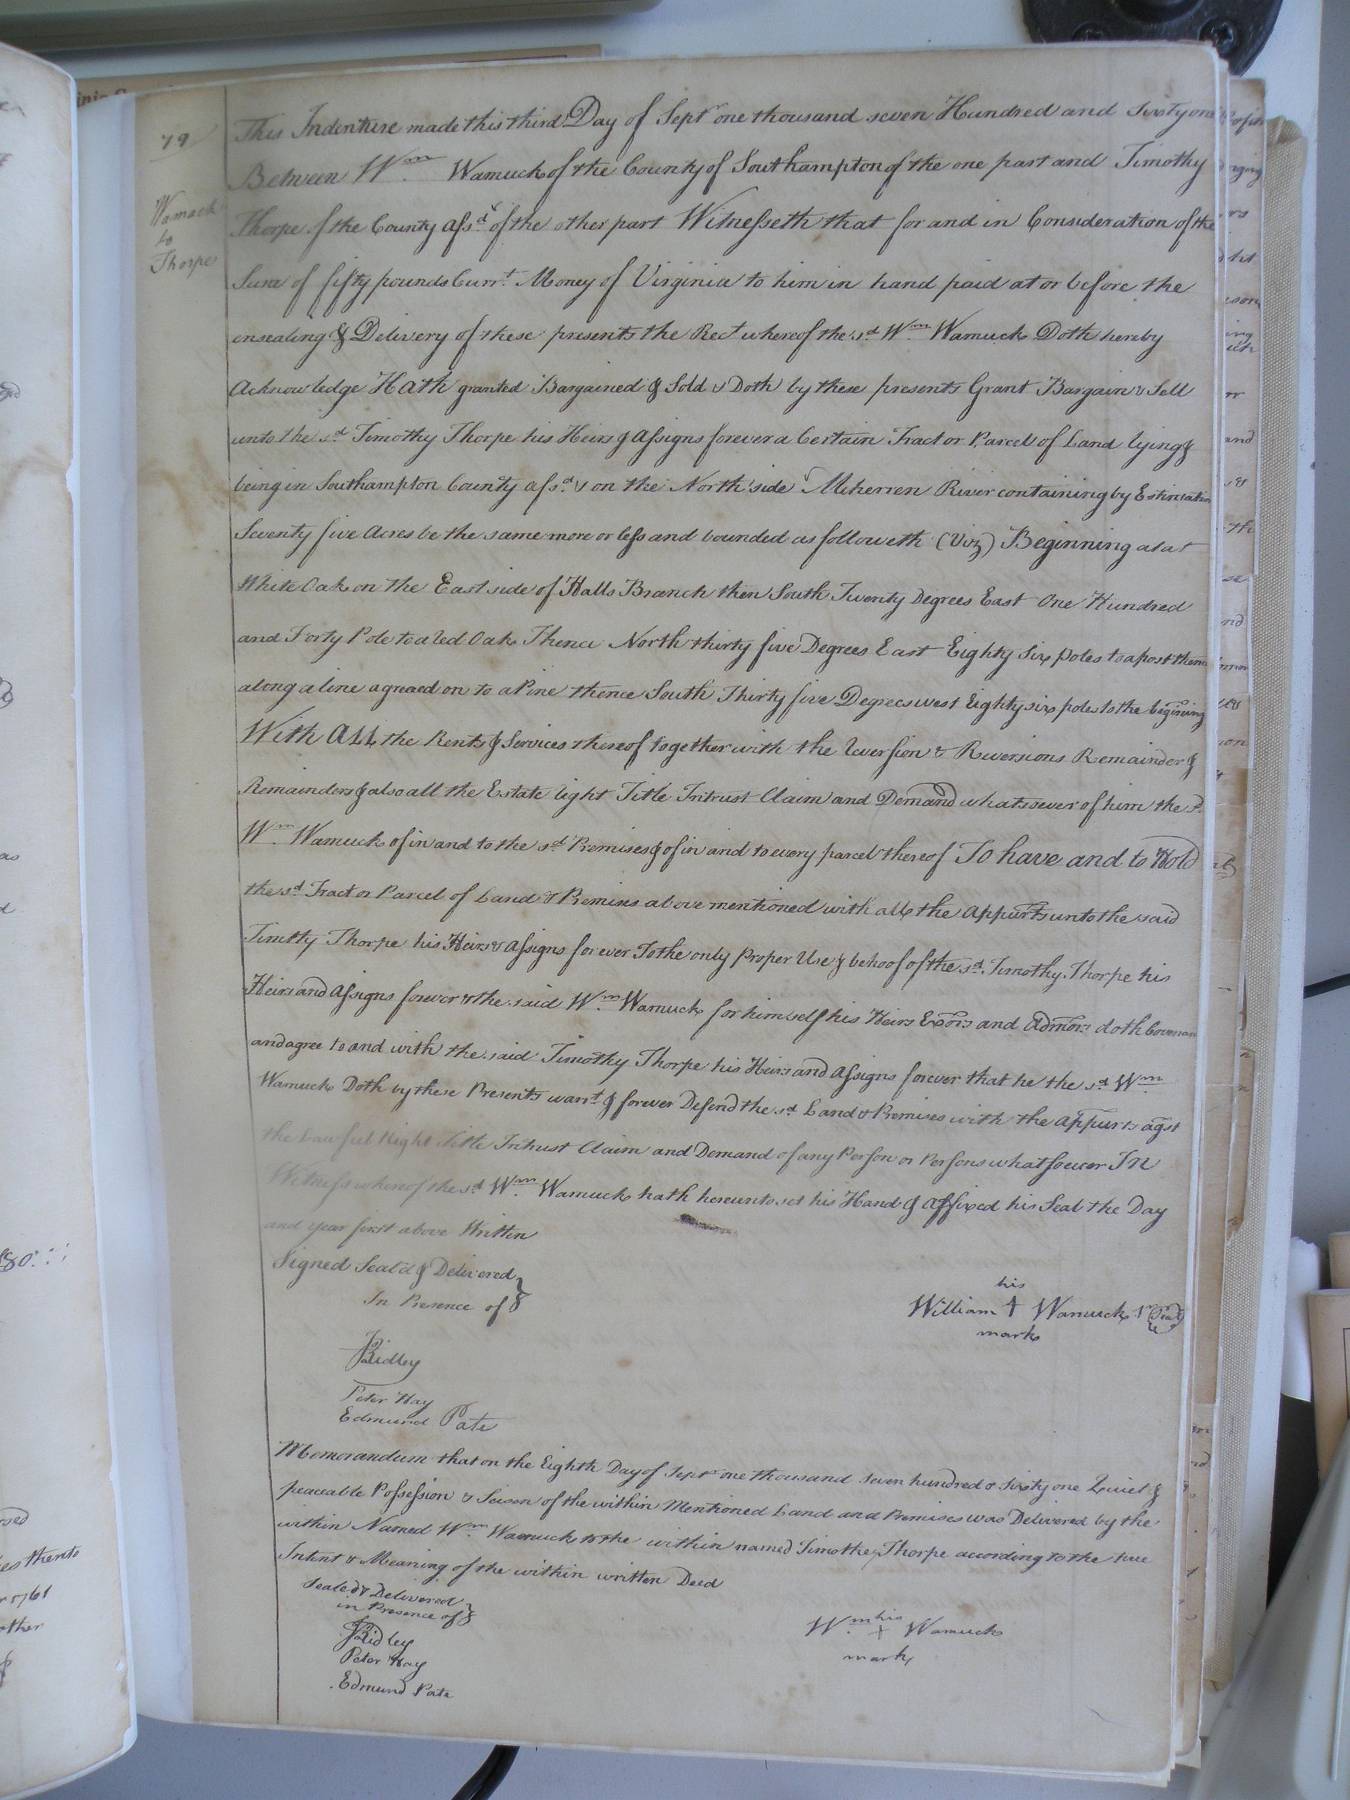 79
Wamack
to
Thorpe
This Indenture made this third Day of Sept. one thousand seven Hundred and Sixty one
Between Wm. Wamuck of the County of Southampton of the one part and Timothy
Thorpe of the County afsd. of the other part Witnesseth that for and in Consideration of the
Sum of fifty pounds Curr.t Money of Virginia to him in hand paid at or before the
ensealing & Delivery of these presents the Rect whereof the sd Wm Wamuck Doth hereby
Acknowledge Hath granted Bargained & Sold & Doth by these presents Grant Bargain & Sell
unto the sd Timothy Thorpe his Heirs & Assigns forever a Certain Tract or Parcel of Land lying &
being in Southampton County afsd & on the North side Meherren River containing by Estimation
Seventy five Acres be the same more or less and bounded as followeth (Viz) Beginning at a
White Oak on the East side of Halls Branch then South Twenty Degrees East One Hundred
and Forty Pole to a Red Oak Thence North thirty five Degrees East Eighty Six poles to a post thence
along a line agreed on to a Pine thence South Thirty five Degrees west Eighty six poles to the begining
With All the Rents & Services thereof together with the Reversion & Reversions Remainder &
Remainders & also all the Estate Right Title Intrust Claim and Demand whatsoever of him the sd.
Wm. Wamuck of in and to the sd Premises & of in and to every parcel thereof To have and to Hold
the sd Tract or Parcel of Land & Premiss above mentioned with all the Appurts unto the said
Timtty Thorpe his Heirs & Assigns forever To the only Proper Use & behoof of the sd. Timothy Thorpe his
Heirs and Assigns forever & the said Wm. Wamuck for himself his Heirs Exors and Admors doth Covenan
and agree to and with the said Timothy Thorpe his Heirs and Assigns forever that he the sd Wm
Wamuck Doth by these Presents warrt & forever Defend the sd Land & Premises with the Appurts agst
the Lawful Right Title Intrust Claim and Demand of any Person or Persons whatsoever In
Witness whereof the sd Wm. Wamuck hath hereunto set his Hand & affixed his Seal the Day
and year first above Written
Signed Seal'd & Delivered
In Presence of
his
William Wamuck Seal
mark
JRidley
Peter Hay
Edmund Pate
Memorandum that on the Eighth Day of Sept one thousand seven hundred & sixty one Quiet &
peaceable Possession & Seison of the within Mentioned Land and Premises was Delivered by the
within Named Wm Wamuck to the within named Timothy Thorpe according to the true
Intent & Meaning of the within written Deed
Sealed & Delivered
in Presence of
his
Wm. X Wamuck
mark
JRidley
Peter Hay
Edmund Pate